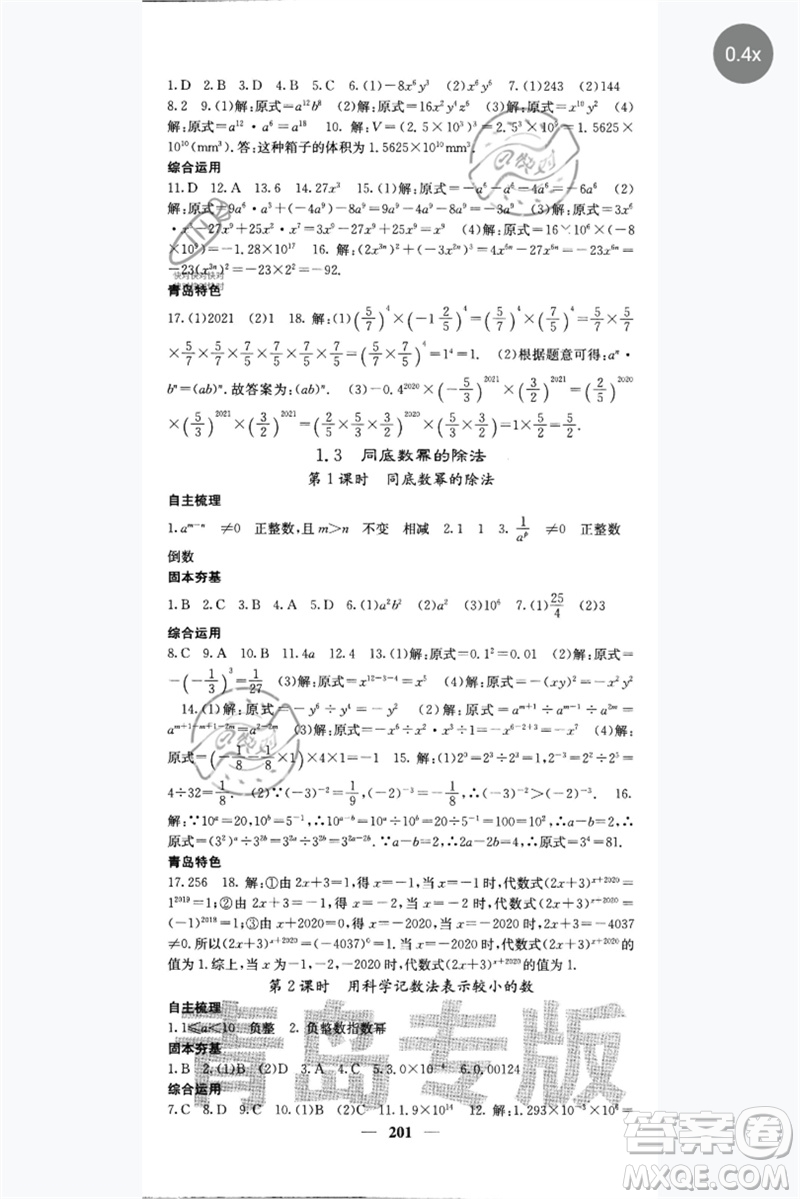 0.4x
1.D 2.B 3.D 4.B 5.C 6.(1)−8x⁶y³ (2)x⁶y 7.(1)243 (2)144
8.2 9.(1)解:原式=a¹²b⁸ (2)解:原式=16x²y⁴z⁶ (3)解:原式=x¹⁰y² (4)
解:原式=a¹²·a⁶=a¹⁸ 10.解:V=(2.5×10³)³=2.5³×10⁹=1.5625×
10¹⁰(mm³).答:这种箱子的体积为1.5625×10¹⁰mm³.
综合运用
11.D 12.A 13.6 14.27x³ 15.(1)解:原式=−a⁶−a⁶−4a⁶=−6a⁶ (2)
解:原式=9a⁶·a³+(−4a⁹)−8a⁹=9a⁹−4a⁹−8a⁹=−3a⁹ (3)解:原式=3x⁶
·x³−27x⁹+25x²·x⁷=3x⁹−27x⁹+25x⁹=x⁹ (4)解:原式=16×10⁸×(−8
×10⁹)=−1.28×10¹⁷ 16.解:(2x³ⁿ)²+(−3x²ⁿ)³=4x⁶ⁿ−27x⁶ⁿ=−23x⁶ⁿ=
−23(x³ⁿ)²=−23×2²=−92.
青岛特色
17.(1)2021 (2)1 18.解:(1)(5/7)⁴×(−1 2/5)⁴=(5/7)⁴×(7/5)⁴=5/7×5/7
×5/7×5/7×7/5×7/5×7/5×7/5=(5/7×7/5)⁴=1⁴=1. (2)根据题意可得:aⁿ·
bⁿ=(ab)ⁿ.故答案为:(ab)ⁿ. (3)−0.4²⁰²⁰×(−5/3)²⁰²¹×(3/2)²⁰²¹=(2/5)²⁰²⁰
×(5/3)²⁰²¹×(3/2)²⁰²¹=(2/5×5/3×3/2)²⁰²⁰×(5/3×3/2)=1×5/2=5/2.
1.3 同底数幂的除法
第1课时 同底数幂的除法
自主梳理
1.aᵐ⁻ⁿ ≠0 正整数,且m>n 不变 相减 2.1 1 3.1/aᵖ ≠0 正整数
倒数
固本夯基
1.B 2.C 3.B 4.A 5.D 6.(1)a²b² (2)a² (3)10⁶ 7.(1)25/4 (2)3
综合运用
8.C 9.A 10.B 11.4a 12.4 13.(1)解:原式=0.1²=0.01 (2)解:原式=
−(−1/3)³=1/27 (3)解:原式=x¹²⁻³⁻⁴=x⁵ (4)解:原式=−(xy)²=−x²y²
14.(1)解:原式=−y⁶÷y⁴=−y² (2)解:原式=aᵐ⁺¹÷aᵐ⁻¹÷a²ᵐ=
aᵐ⁺¹⁻ᵐ⁺¹⁻²ᵐ=a²⁻²ᵐ (3)解:原式=−x⁶⁻²⁺³=−x⁷ (4)解:
原式=(−1/8−1/8×1)×4×1=−1/4×4×1=−1. 15.解:(1)2²÷2³÷2²=2²÷2⁵=
4÷32=1/8. (2)∵(−3)⁻²=1/9,(−2)⁻³=−1/8,∴(−3)⁻²>(−2)⁻³. 16.
解:∵10ᵃ=20,10ᵇ=5⁻¹,∴10ᵃ⁻ᵇ=10ᵃ÷10ᵇ=20÷5⁻¹=100=10²,∴a−b=2,∴
原式=(3²)ᵃ÷3²ᵇ=3²ᵃ÷3²ᵇ=3²ᵃ⁻²ᵇ.∵a−b=2,∴2a−2b=4,∴原式=3⁴=81.
青岛特色
17.256 18.解:①由2x+3=1,得x=−1,当x=−1时,代数式(2x+3)ˣ⁺²⁰²⁰=
1²⁰¹⁹=1;②由2x+3=−1,得x=−2,当x=−2时,代数式(2x+3)ˣ⁺²⁰²⁰=
(−1)²⁰¹⁸=1;③由x+2020=0,得x=−2020,当x=−2020时,2x+3=−4037
≠0.所以(2x+3)ˣ⁺²⁰²⁰=(−4037)⁰=1.综上,当x=−2020时,代数式(2x+3)ˣ⁺²⁰²⁰的
值为1.综上,当x为−1、−2、−2020时,代数式(2x+3)ˣ⁺²⁰²⁰的值为1.
第2课时 用科学记数法表示较小的数
自主梳理
1.1≤a<10 负整 2.负整数指数幂
固本夯基
1.B 2.(1)B (2)D 3.A 4.C 5.3.0×10⁻⁹ 6.0.00124
综合运用
7.C 8.D 9.C 10.(1)B (2)C 11.1.9×10¹⁴ 12.解:1.293×10⁻³÷
201
青岛专版
答案卷
MXQE.COM